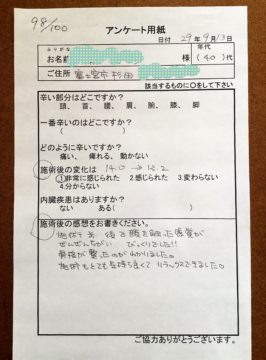 98/100
アンケート用紙
日付 29年9月13日
ふりがな
お名前 様
年代
(40)代
ご住所 富士宮市杉田
該当するものに○をして下さい
辛い部分はどこですか?
頭、首、腰、肩、腕、膝、脚
一番辛いのはどこですか?
( )
どのように辛いですか?
痛い、痺れる、動かない
施術後の変化は 14.0→13.2
①非常に感じられた 2.感じられた 3.変わらない
4.分からない
内臓疾患はありますか?
ない ある( )
施術後の感想をお書きください。
施術前、後で腰を触った感覚が
ぜんぜんちがい びっくりした!!
骨格が整ったのがわかりました。
施術もとても気持ち良くてリラックスできました。
ご協力ありがとうございます。